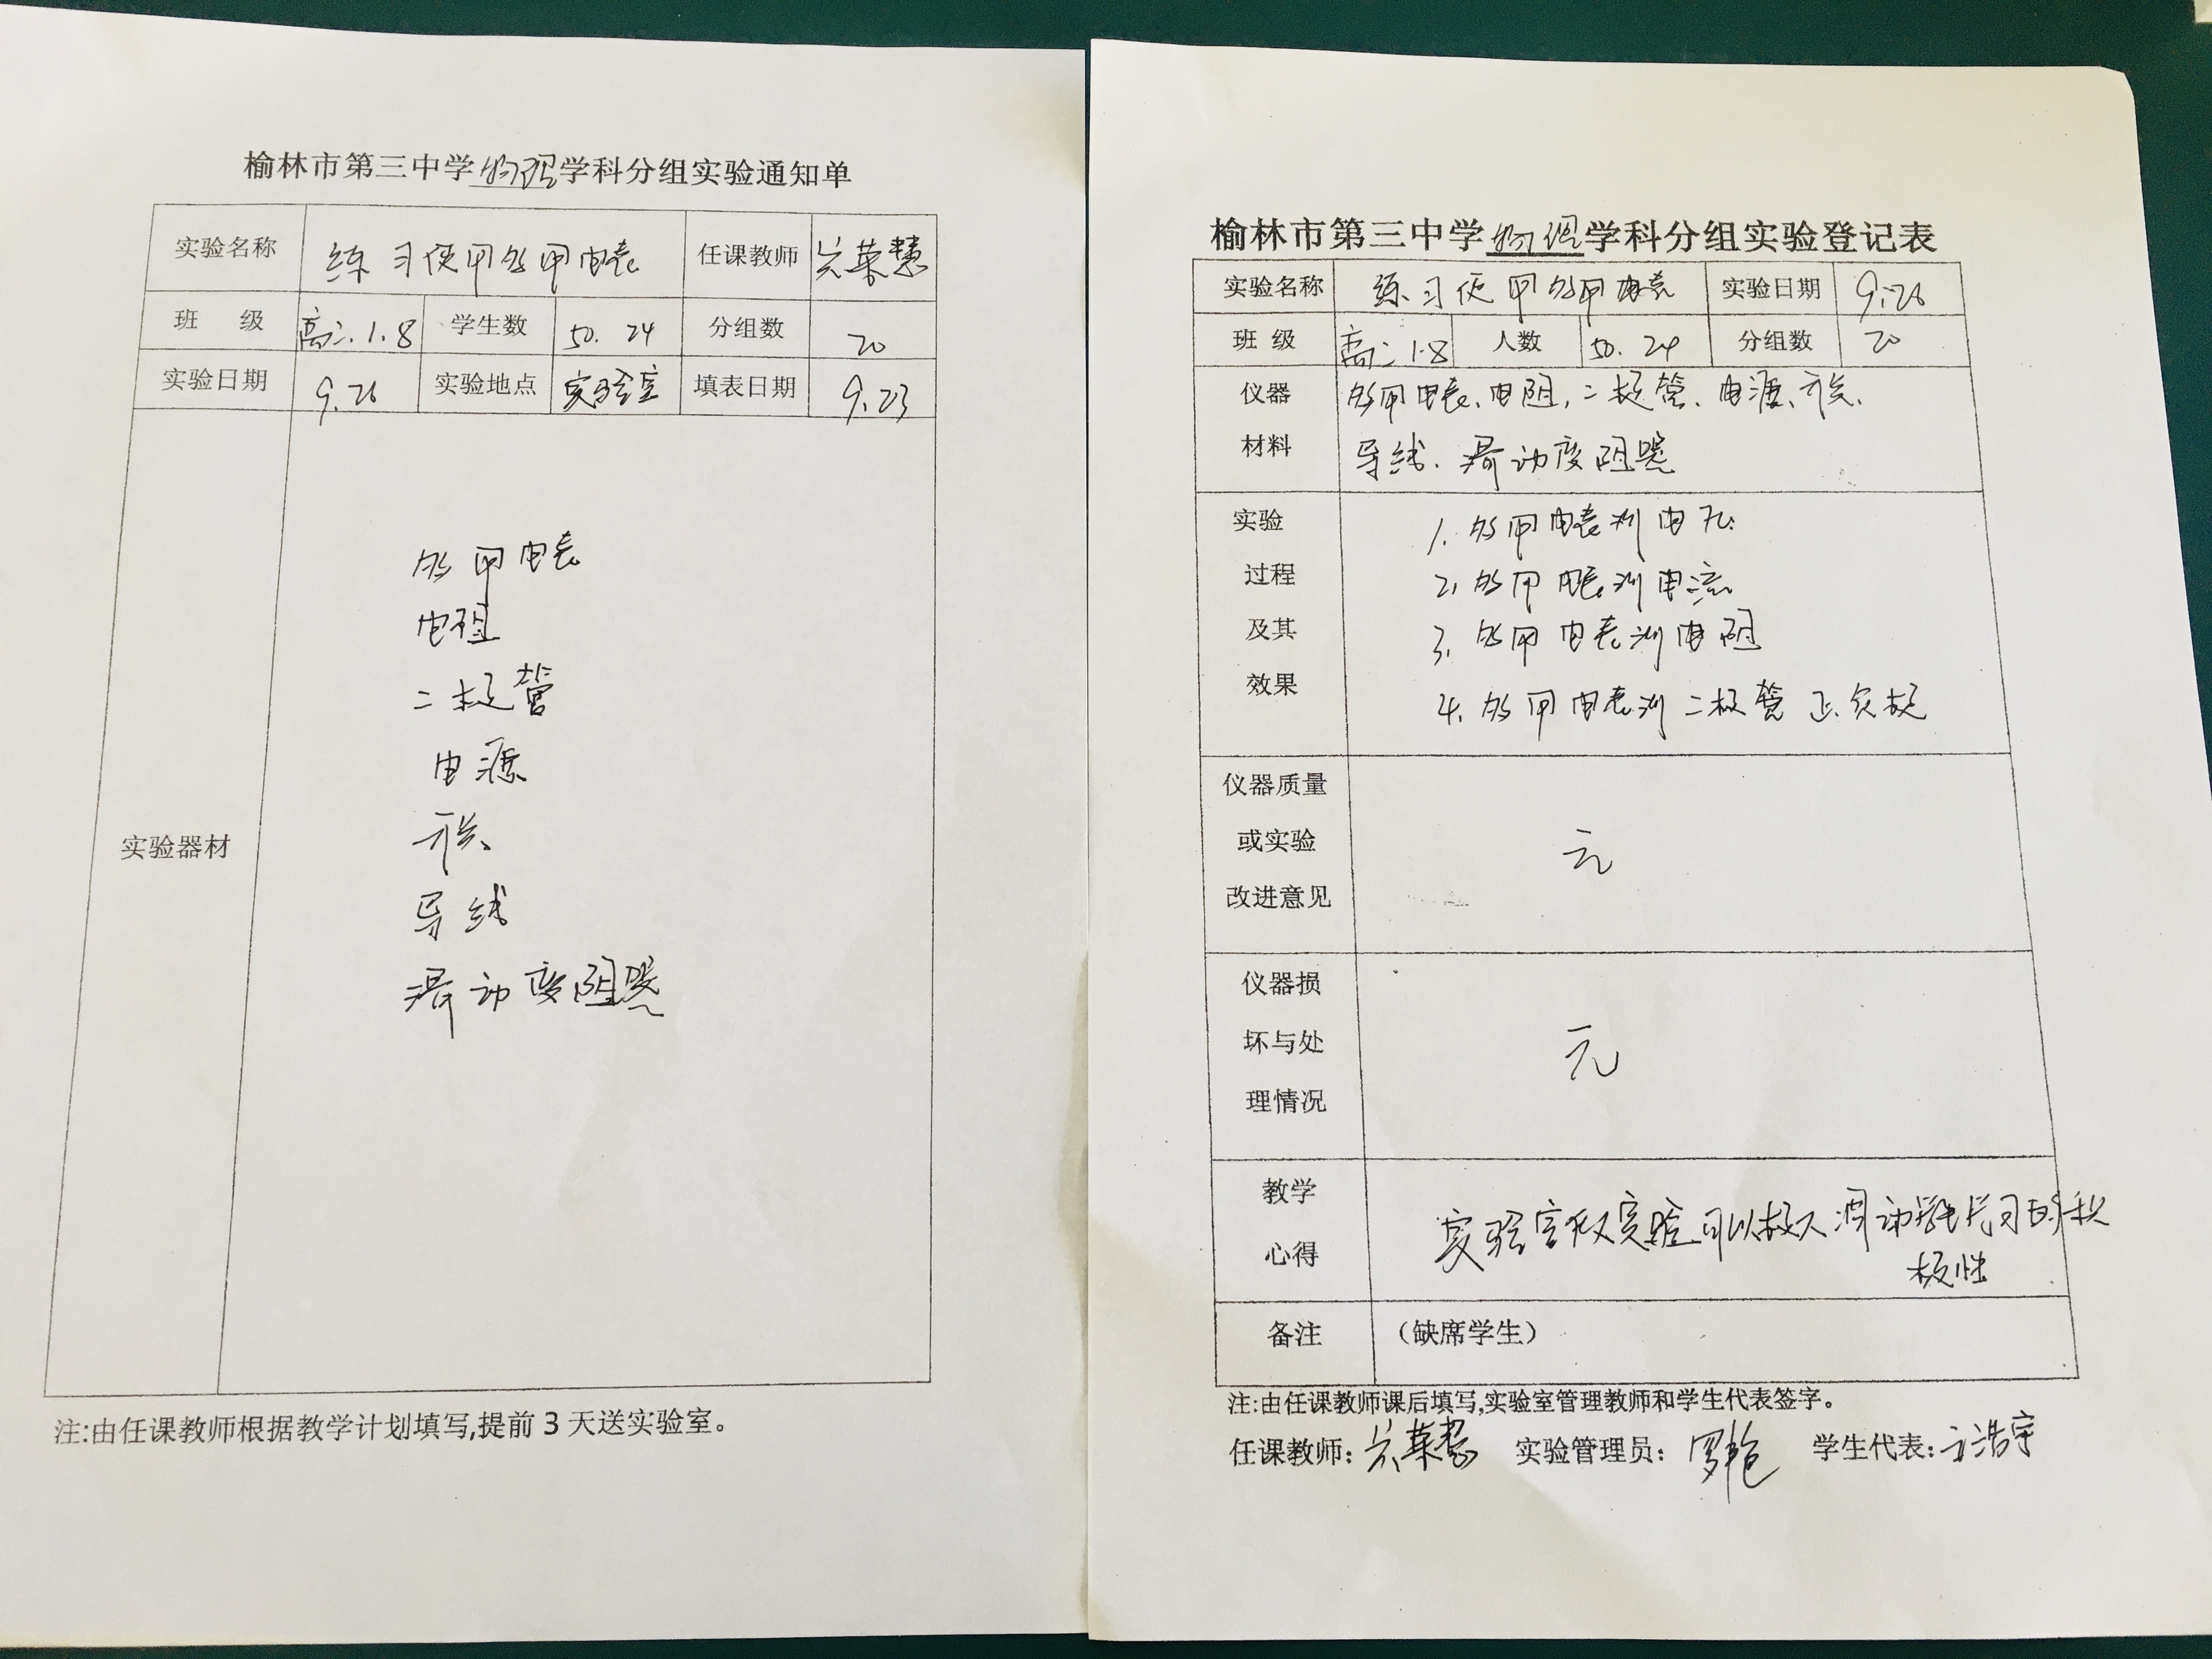 榆林市第三中学物理学科分组实验通知单
实验名称 练习使用多用电表 任课教师 荣慧
班 级 高二.1.8 学生数 50. 24 分组数 20
实验日期 9.26 实验地点 实验室 填表日期 9.23
实验器材
多用电表
电阻
二极管
电源
开关
导线
滑动变阻器
注:由任课教师根据教学计划填写,提前3天送实验室。
榆林市第三中学物理学科分组实验登记表
实验名称 练习使用多用电表 实验日期 9.26
班 级 高二 1.8 人数 50. 24 分组数 20
仪器 多用电表、电阻,二极管、电源、开关、
材料 导线、滑动变阻器
实验 1. 多用电表测电压
过程 2. 多用电表测电流
及其 3. 多用电表测电阻
效果 4. 多用电表测二极管正.负极
仪器质量
或实验 无
改进意见
仪器损
坏与处 无
理情况
教学 实验室做实验可以极大调动学生学习的积
心得 极性
备注 (缺席学生)
注:由任课教师课后填写,实验室管理教师和学生代表签字。
任课教师: 荣慧 实验管理员: 罗艳 学生代表: 浩宇